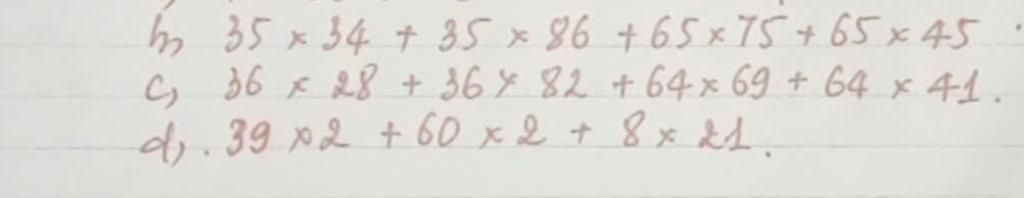 b, 35 × 34 + 35 × 86 + 65 × 75 + 65 × 45
c, 36 × 28 + 36 × 82 + 64 × 69 + 64 × 41.
d, . 39 × 2 + 60 × 2 + 8 × 21.